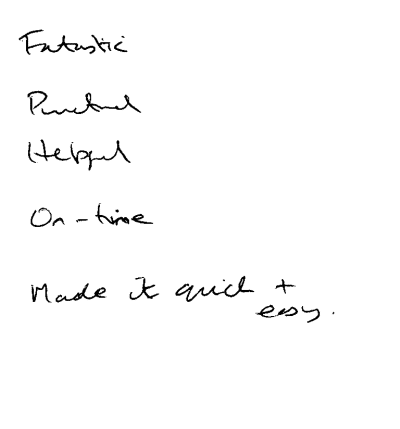 Fantastic
Punctual
Helpful
On-time
Made it quick +
easy.